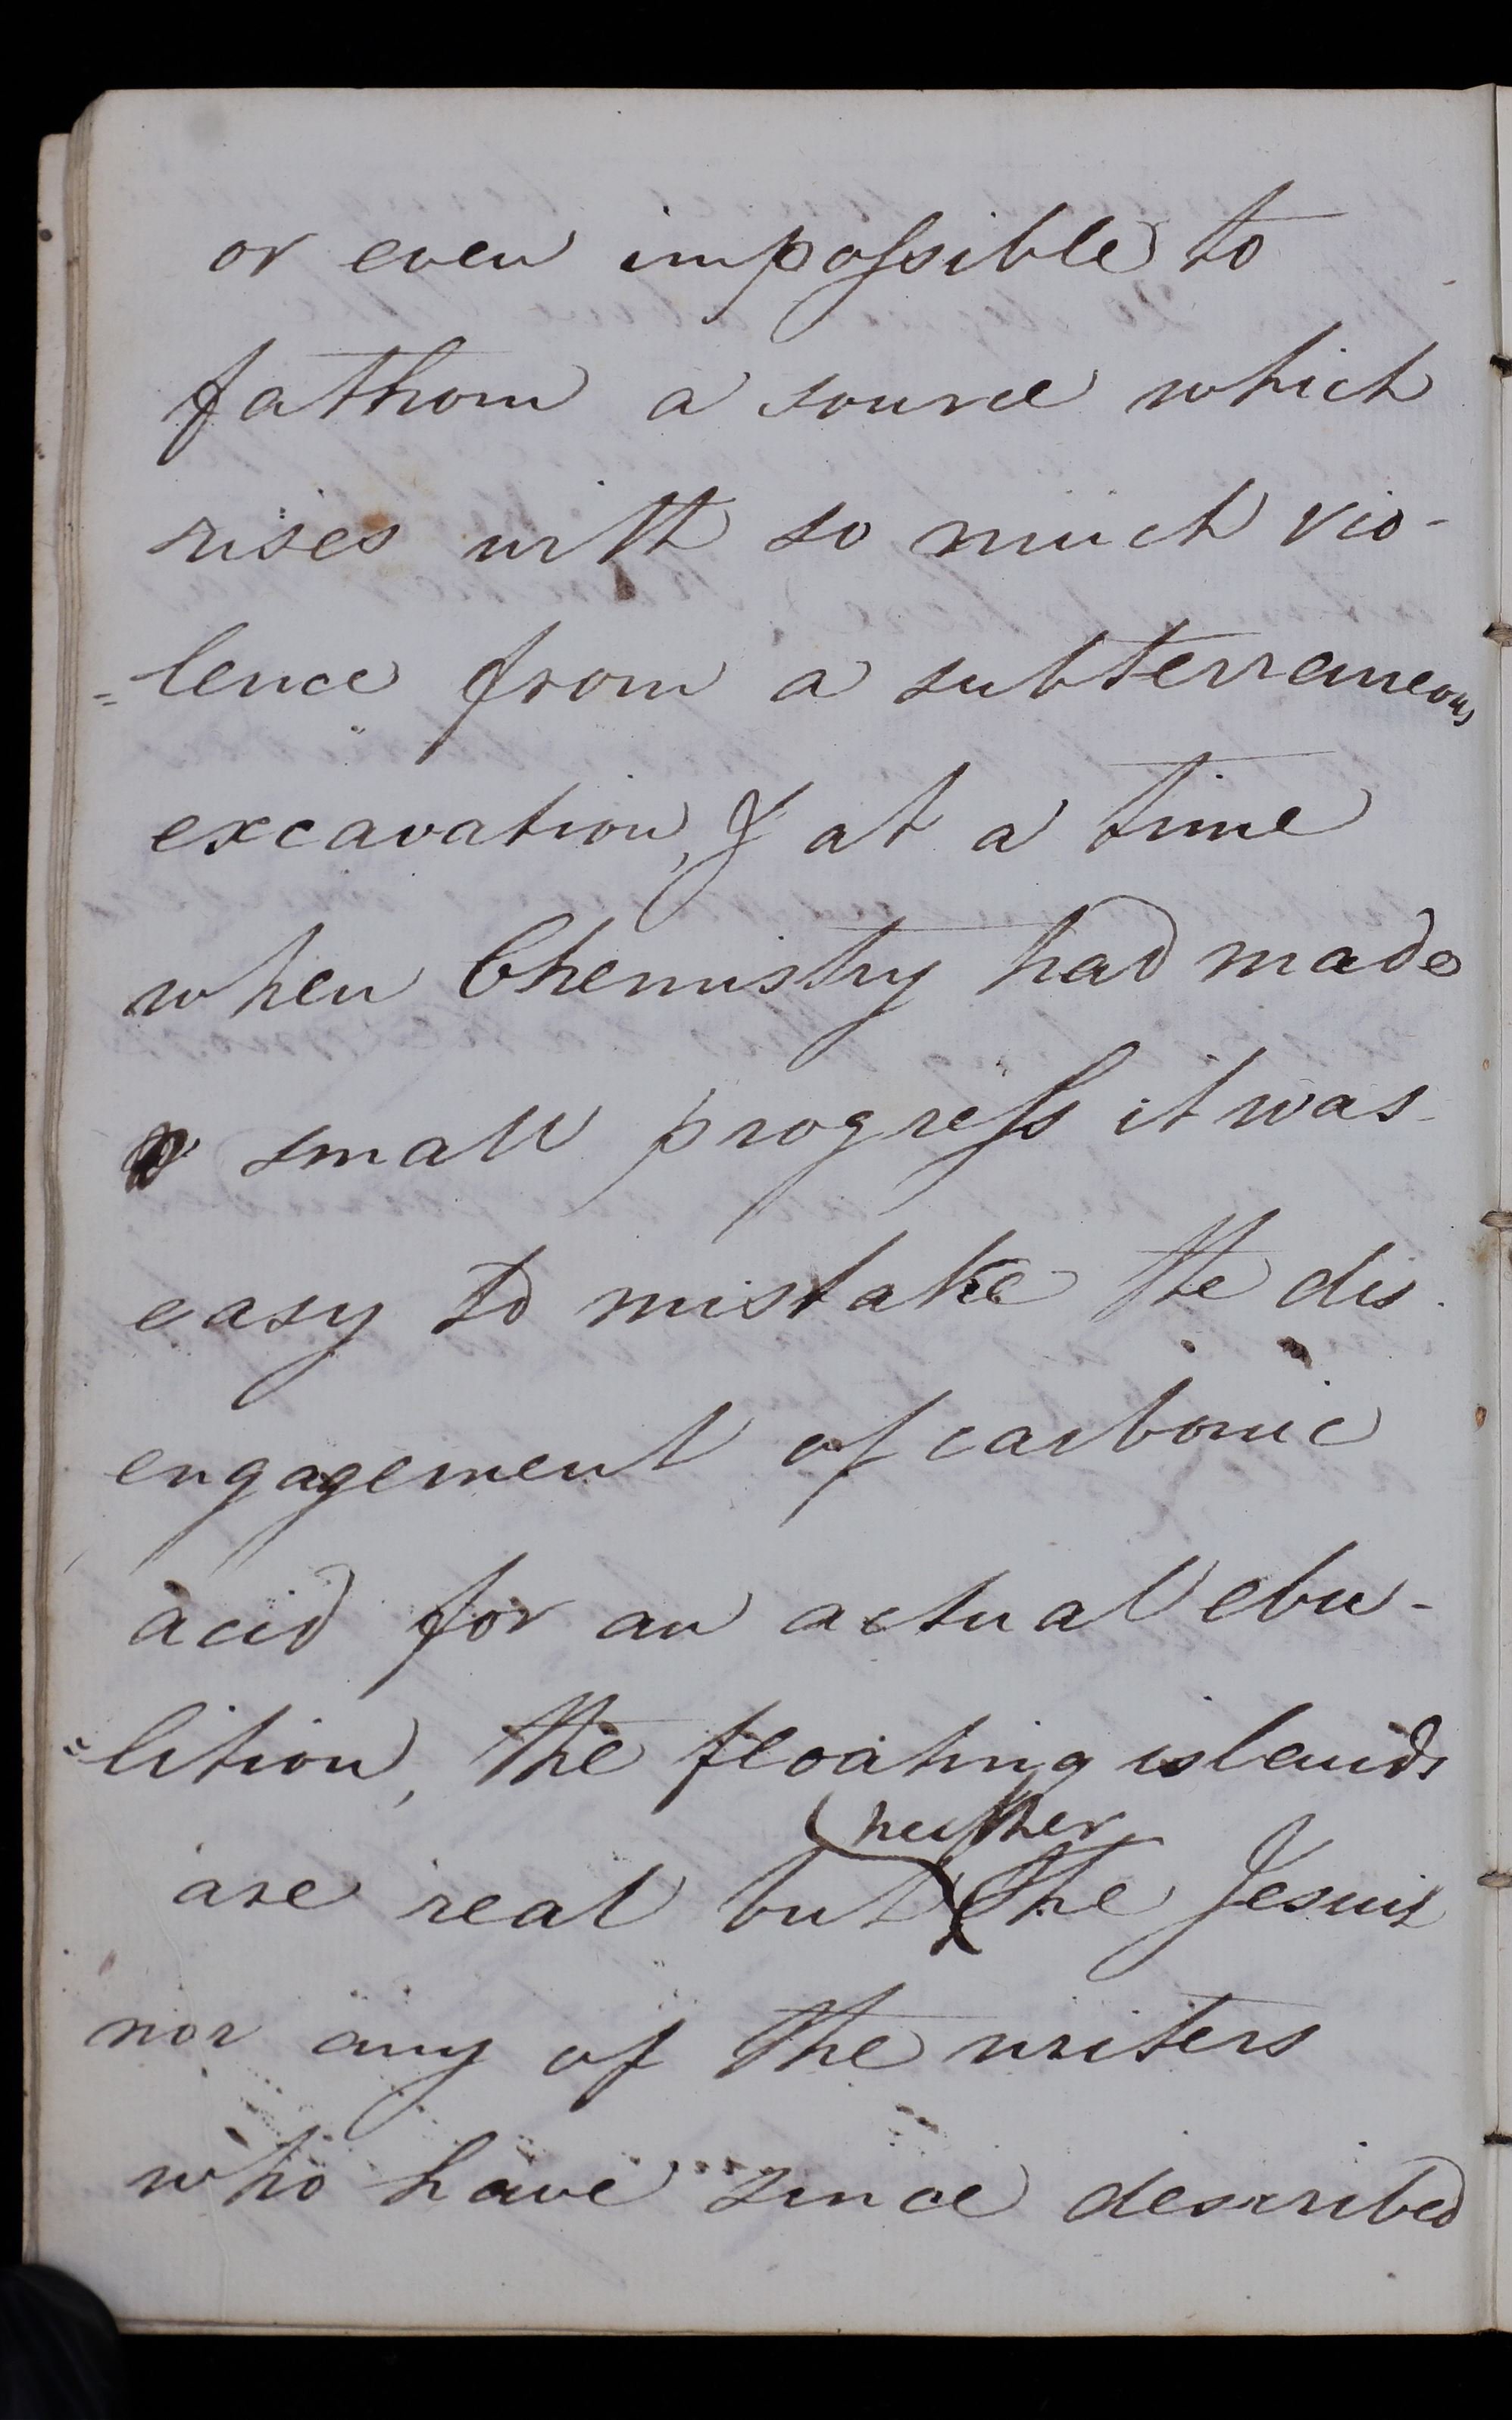 or even impossible to
fathom a source which
rises with so much vio-
=lence from a subterraneous
excavation, & at a time
when Chemistry had made
small progress it was
easy to mistake the dis.
engagement of carbonic
acid for an actual ebu-
=lition, the floating islands
neither
are real but the Jesuit
nor any of the writers
who have since described